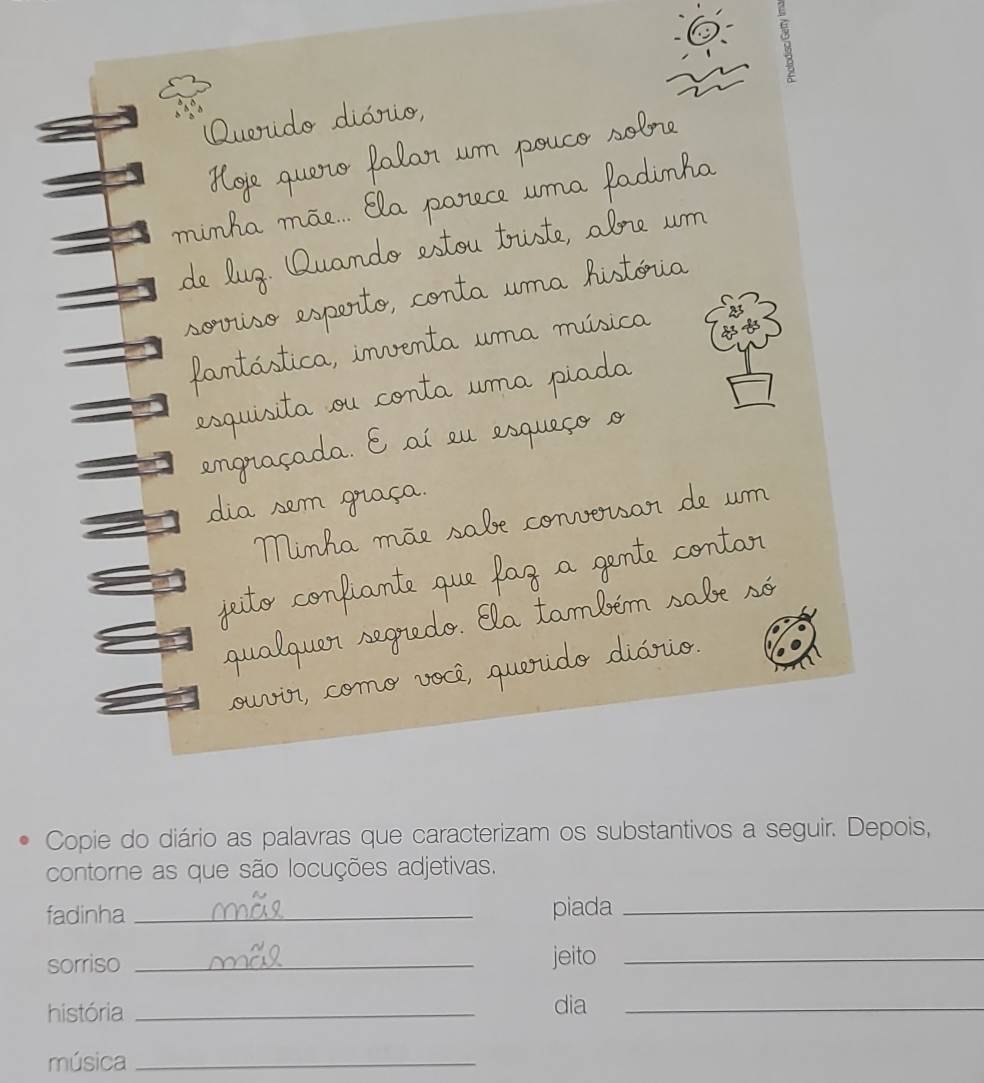 Photodisc/Getty Ima
Querido diário,
Hoje quero falar um pouco sobre
minha mãe... Ela parece uma fadinha
de luz. Quando estou triste, abre um
sorriso esperto, conta uma história
fantástica, inventa uma música
esquisita ou conta uma piada
engraçada. E aí eu esqueço o
dia sem graça.
Minha mãe sabe conversar de um
jeito confiante que faz a gente contar
qualquer segredo. Ela também sabe só
ouvir, como você, querido diário.
• Copie do diário as palavras que caracterizam os substantivos a seguir. Depois,
contorne as que são locuções adjetivas.
fadinha mãe
sorriso mãe
história
música
piada
jeito
dia